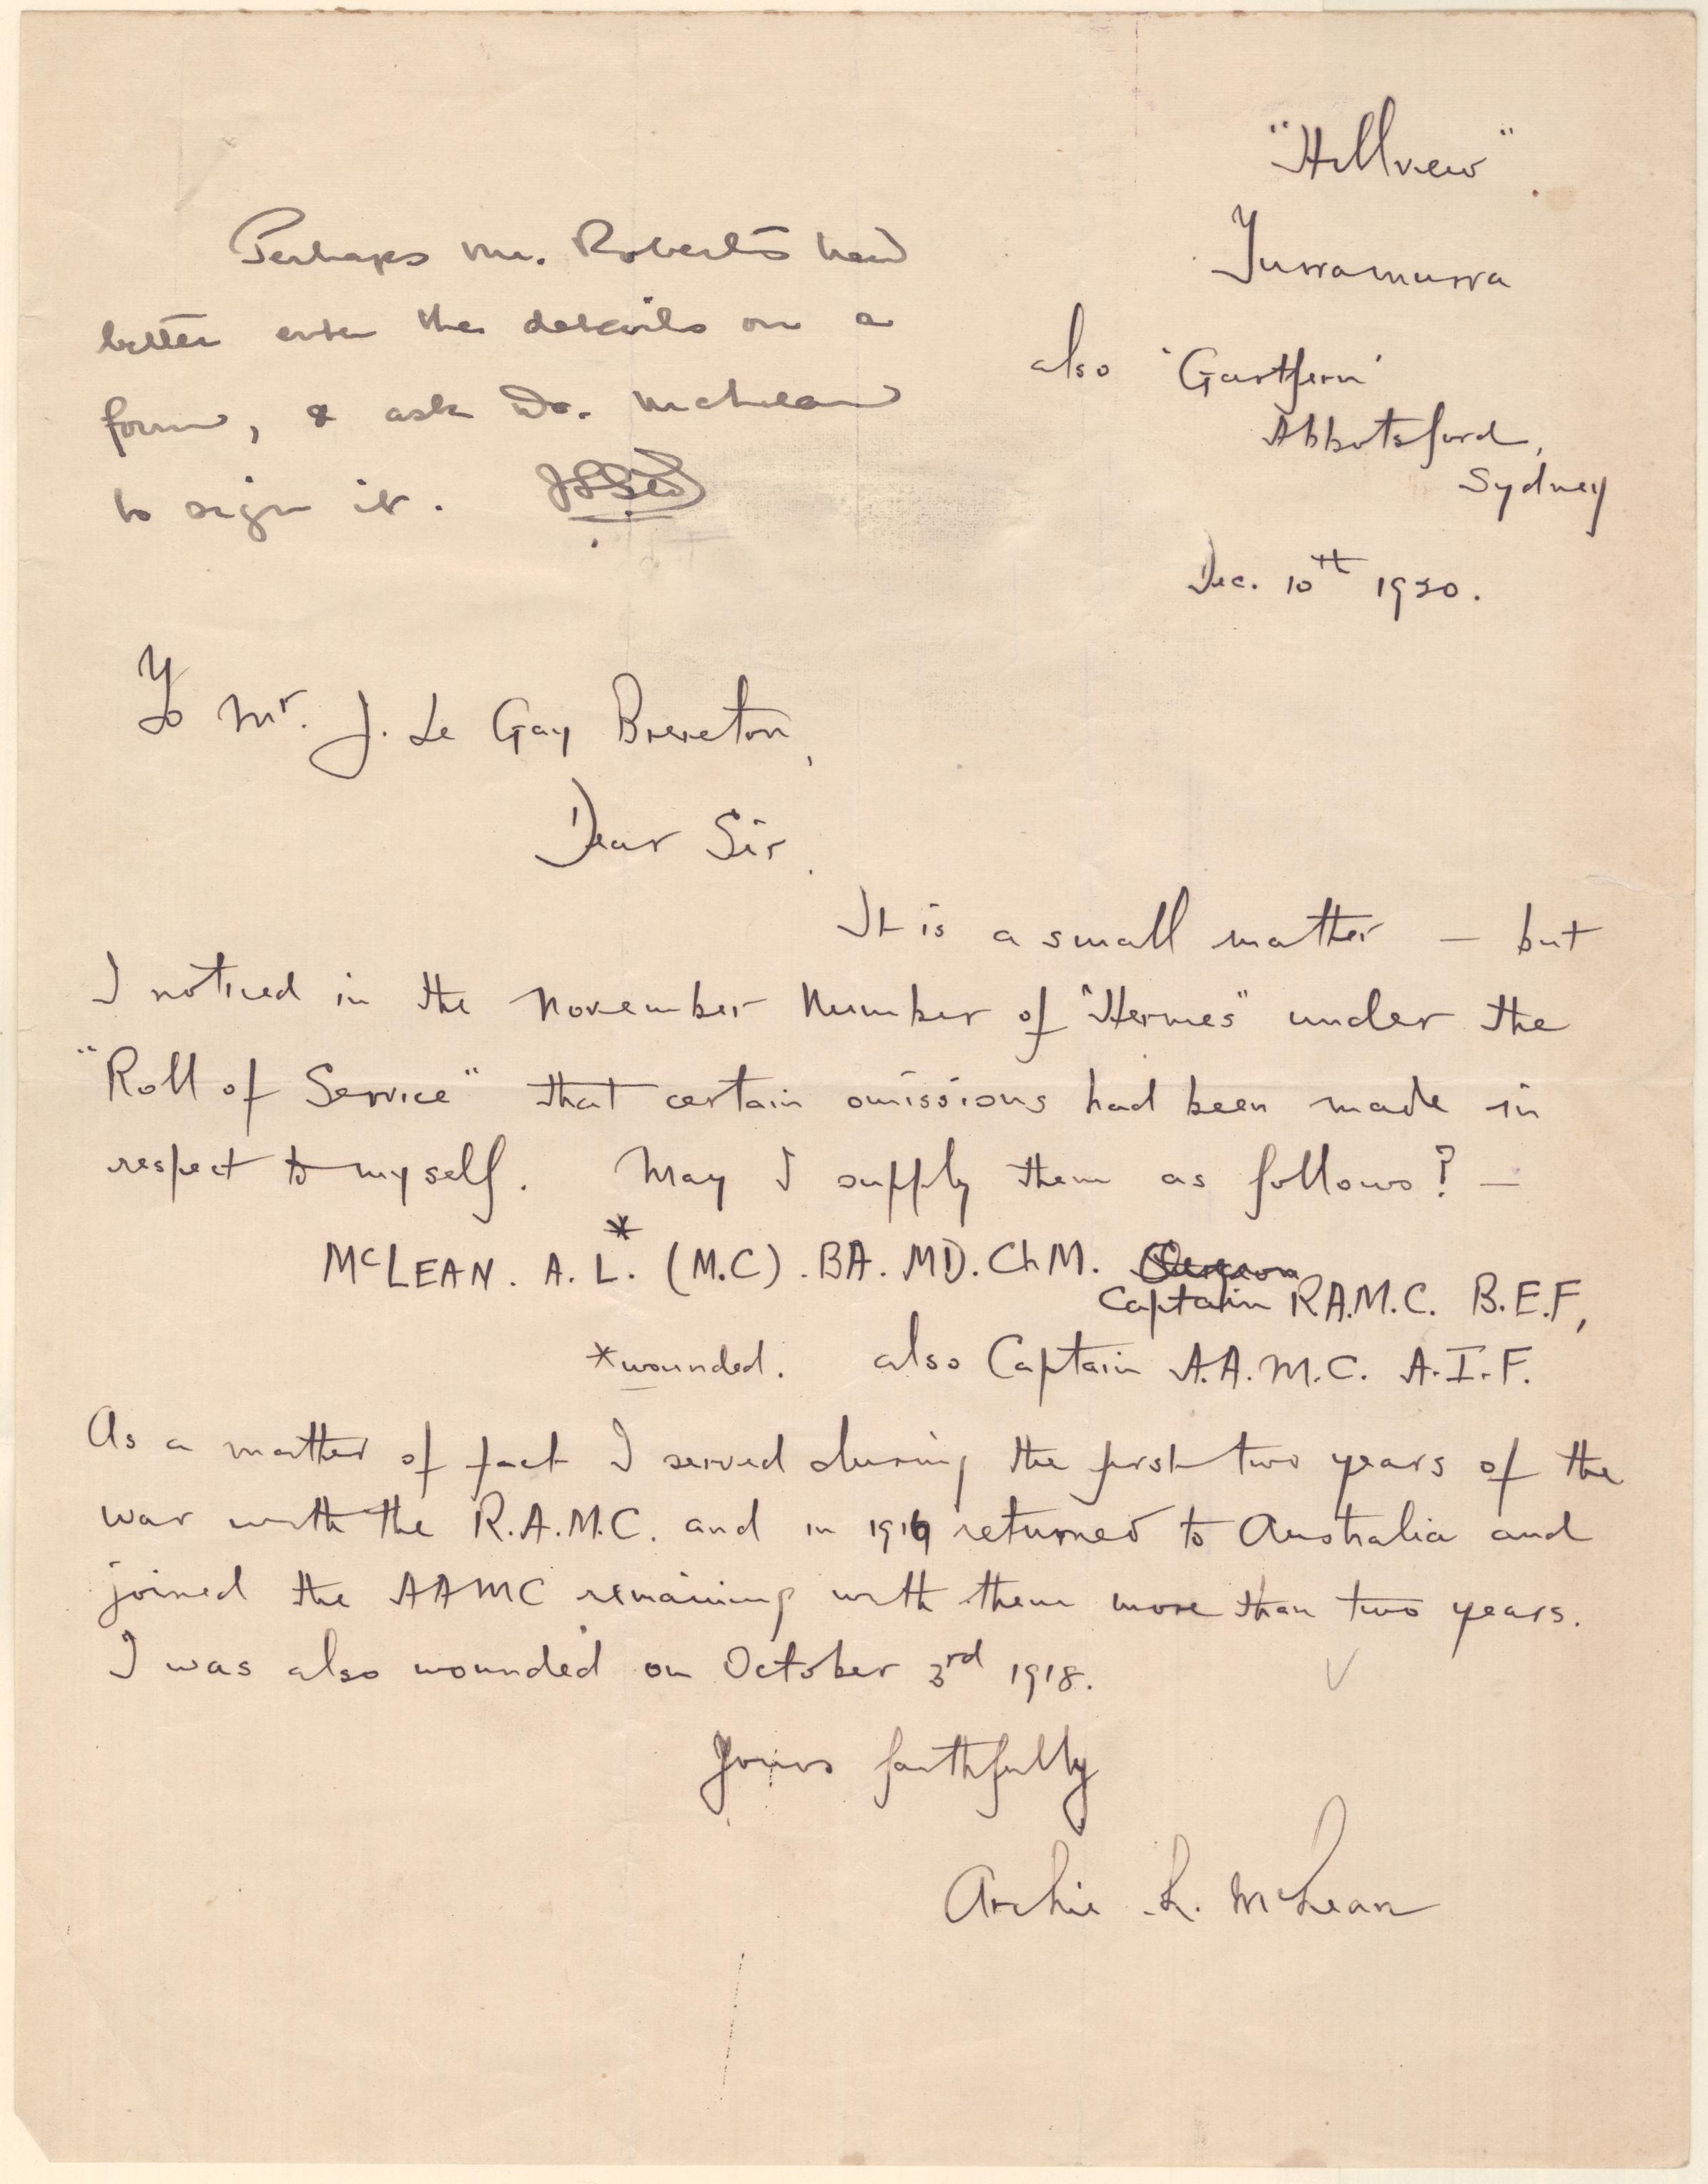 "Hillview".
Turramurra
also 'Gartfern'
Abbotsford,
Sydney
Dec. 10th 1920.
Perhaps Mr. Roberts had
better enter the details on a
form, & ask Dr. McLean
to sign it.
To Mr. J. Le Gay Brereton,
Dear Sir,
It is a small matter — but
I noticed in the November Number of "Hermes" under the
"Roll of Service" that certain omissions had been made in
respect to myself. May I supply them as follows? —
McLEAN. A. L.* (M.C). BA. MD. ChM. Surgeon
Captain R.A.M.C. B.E.F,
*wounded. also Captain A.A.M.C. A.I.F.
As a matter of fact I served during the first two years of the
war with the R.A.M.C. and in 1916 returned to Australia and
joined the AAMC remaining with them more than two years.
I was also wounded on October 3rd 1918.
Yours faithfully
Archie L. McLean